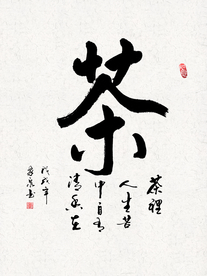 茶
茶裡
人生苦
中自有
清香在
戊戌年